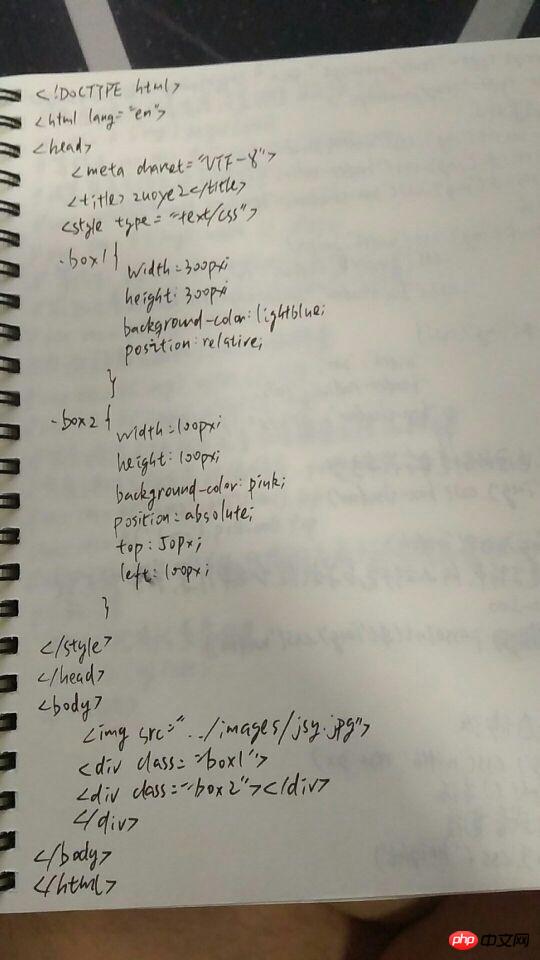 <!DOCTYPE html>
<html lang="en">
<head>
<meta charset="UTF-8">
<title>zuoye2</title>
<style type="text/css">
.box1{
width:300px;
height:300px;
background-color:lightblue;
position:relative;
}
.box2{
width:100px;
height:100px;
background-color:pink;
position:absolute;
top:50px;
left:100px;
}
</style>
</head>
<body>
<img src="../images/jsy.jpg">
<div class="box1">
<div class="box2"></div>
</div>
</body>
</html>
php 中文网